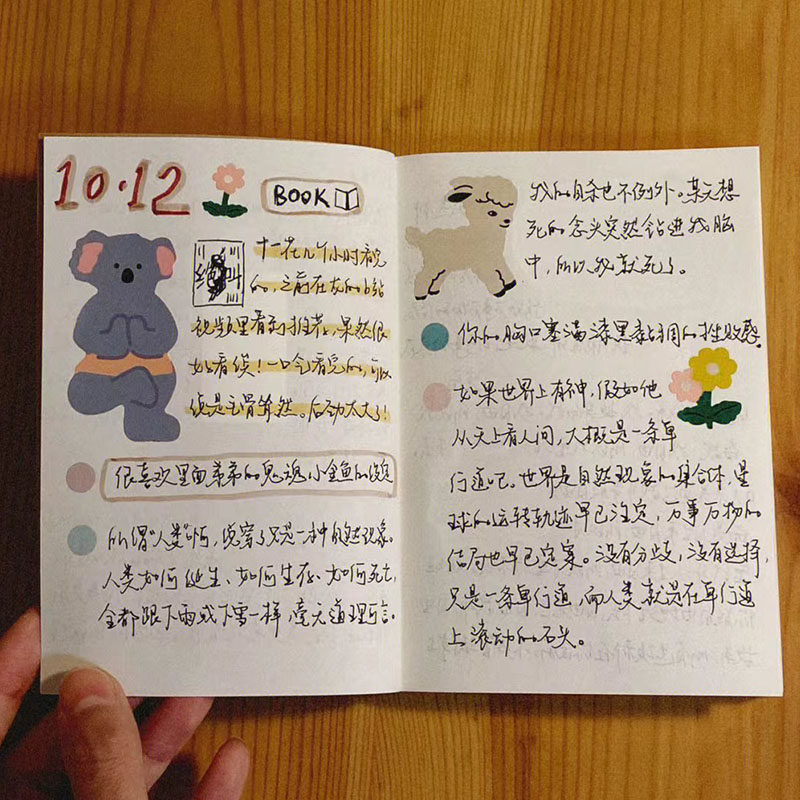 10·12
BOOK
绝叫
十一花几个小时看完
的，之前在友的b站
视频里看到推荐，果然很
好看诶！一口气看完的，可以
说是毛骨耸然。后劲太大了！
很喜欢里面弟弟的鬼魂，小金鱼的设定
所谓“人类”啊，说穿了只是一种自然现象。
人类如何诞生、如何生存、如何死亡，
全都跟下雨或下雪一样，毫无道理可言。
我的自杀也不例外。某天想
死的念头突然钻进我脑
中，所以我就死了。
你的胸口塞满漆黑黏稠的挫败感。
如果世界上有神，假如他
从天上看人间，大概是一条单
行道吧。世界是自然现象的集合体，星
球的运转轨迹早已注定，万事万物的
结局也早已定案。没有分歧，没有选择，
只是一条单行道，而人类就是在单行道
上滚动的石头。